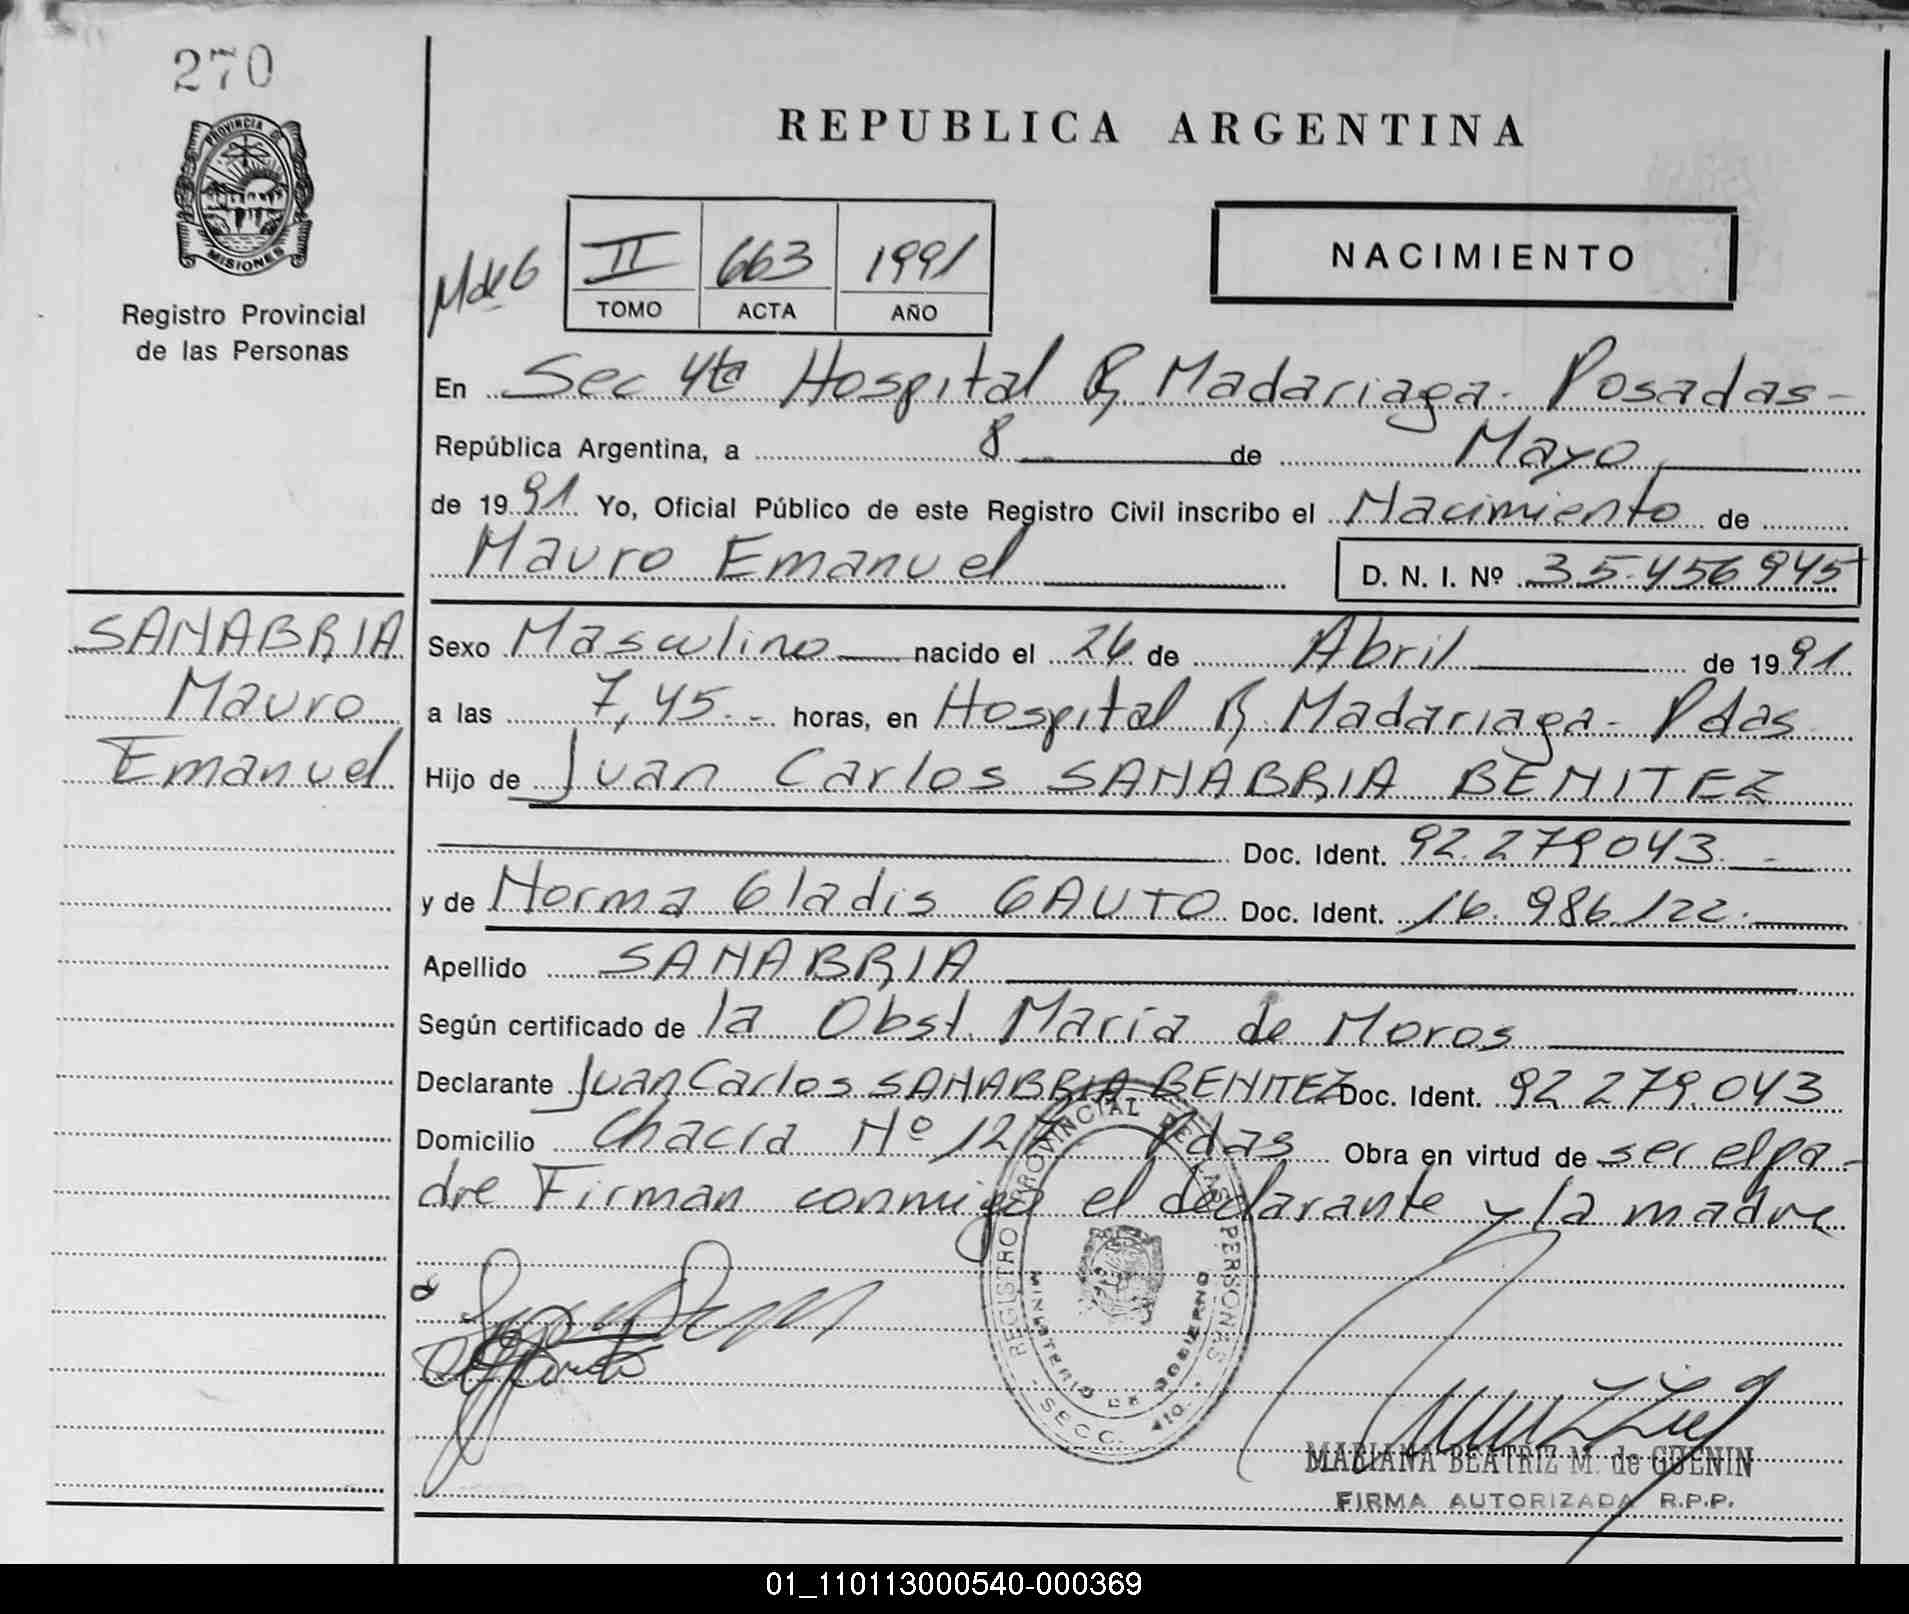 270
PROVINCIA DE
MISIONES
Registro Provincial
de las Personas
REPUBLICA ARGENTINA
II 663 1991
TOMO ACTA AÑO
NACIMIENTO
En Sec 4ta Hospital R, Madariaga. Posadas-
República Argentina, a 8 de Mayo
de 1991 Yo, Oficial Público de este Registro Civil inscribo el Nacimiento de
Mauro Emanuel D. N. I. Nº 35.456945
SANABRIA
Mauro
Emanuel
Sexo Masculino nacido el 26 de Abril de 1991
a las 7,45.- horas, en Hospital R, Madariaga- Pdas
Hijo de Juan Carlos SANABRIA BENITEZ
Doc. Ident. 92.279043.
y de Norma Gladis GAUTO Doc. Ident. 16.986.122.
Apellido SANABRIA
Según certificado de la Obst. Maria de Moros
Declarante Juan Carlos SANABRIA BENITEZ Doc. Ident. 92 279.043
Domicilio Chacra Nº 127 Pdas Obra en virtud de ser el pa-
dre Firman conmigo el declarante y la madre
REGISTRO PROVINCIAL DE LAS PERSONAS
MINISTERIO DE GOBIERNO
SECC. 4ta.
MARIANA BEATRIZ M. de GUENIN
FIRMA AUTORIZADA R.P.P.
01_110113000540-000369